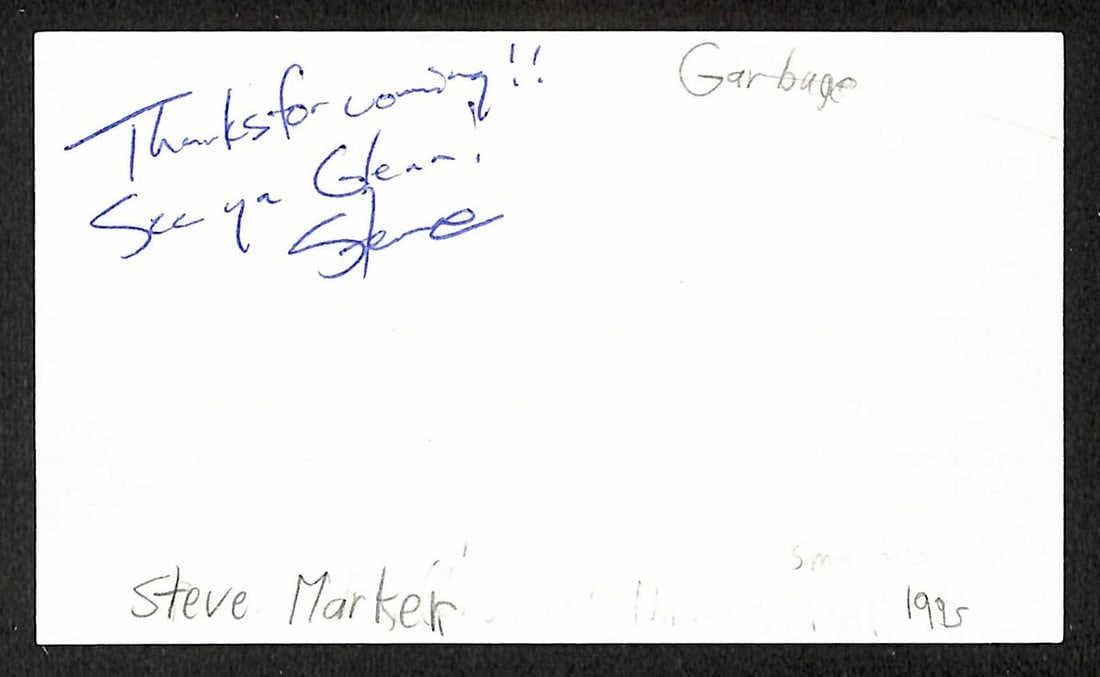 Thanks for coming!!
See ya Glenn!
Steve
Garbage
Steve Marker
1995